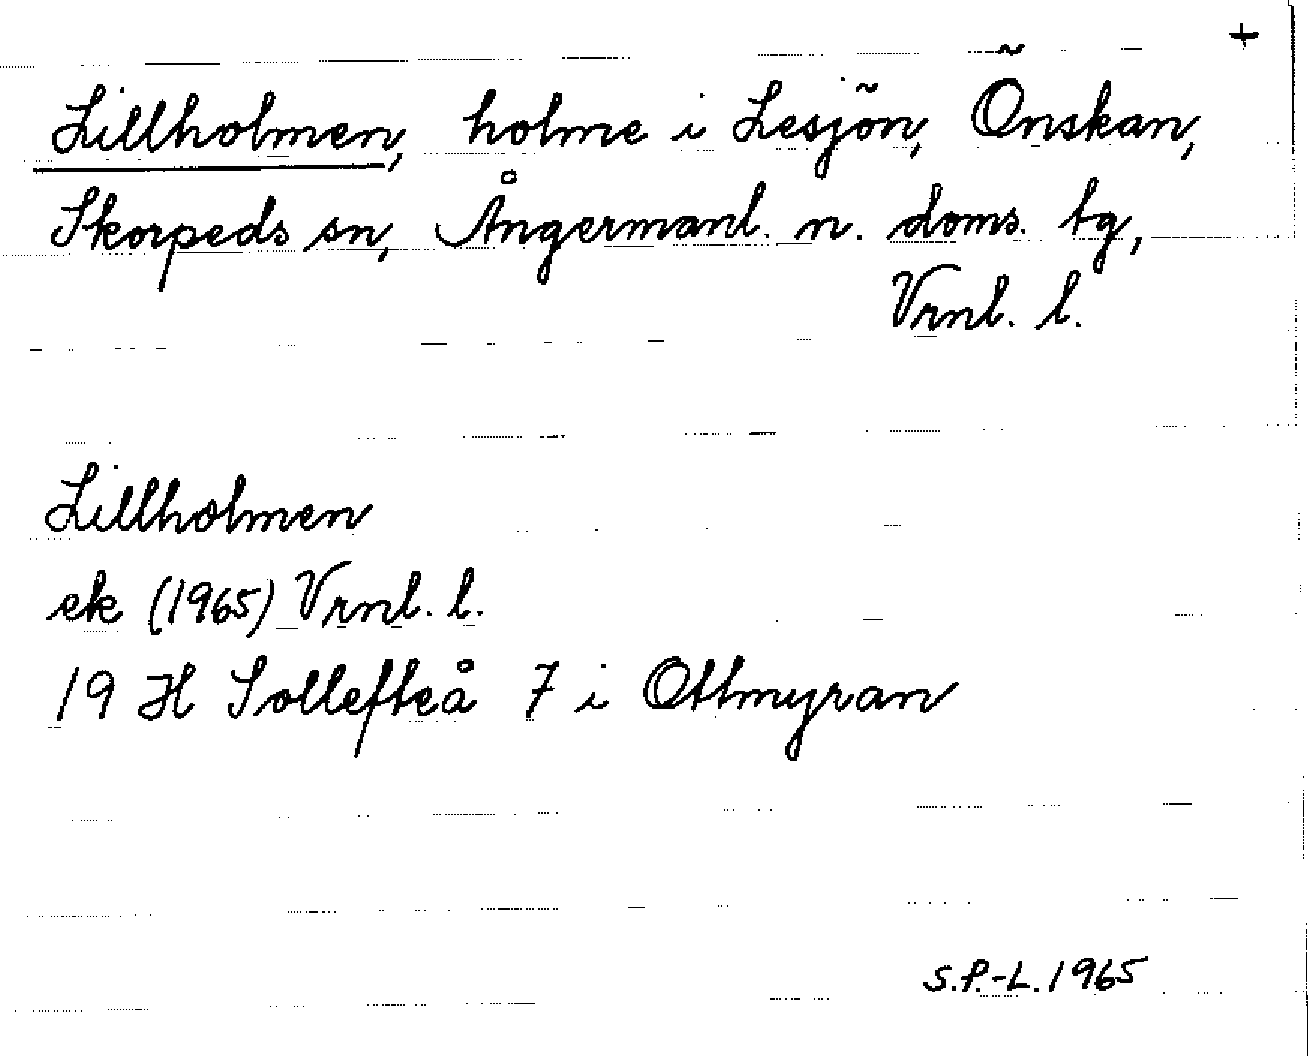 +
Lillholmen, holme i Lesjön, Önskan,
Skorpeds sn, Ångermanl. n. doms. tg,
Vrnl. l.
Lillholmen
ek (1965) Vrnl. l.
19 H Sollefteå 7 i Ottmyran
S.P.-L. 1965